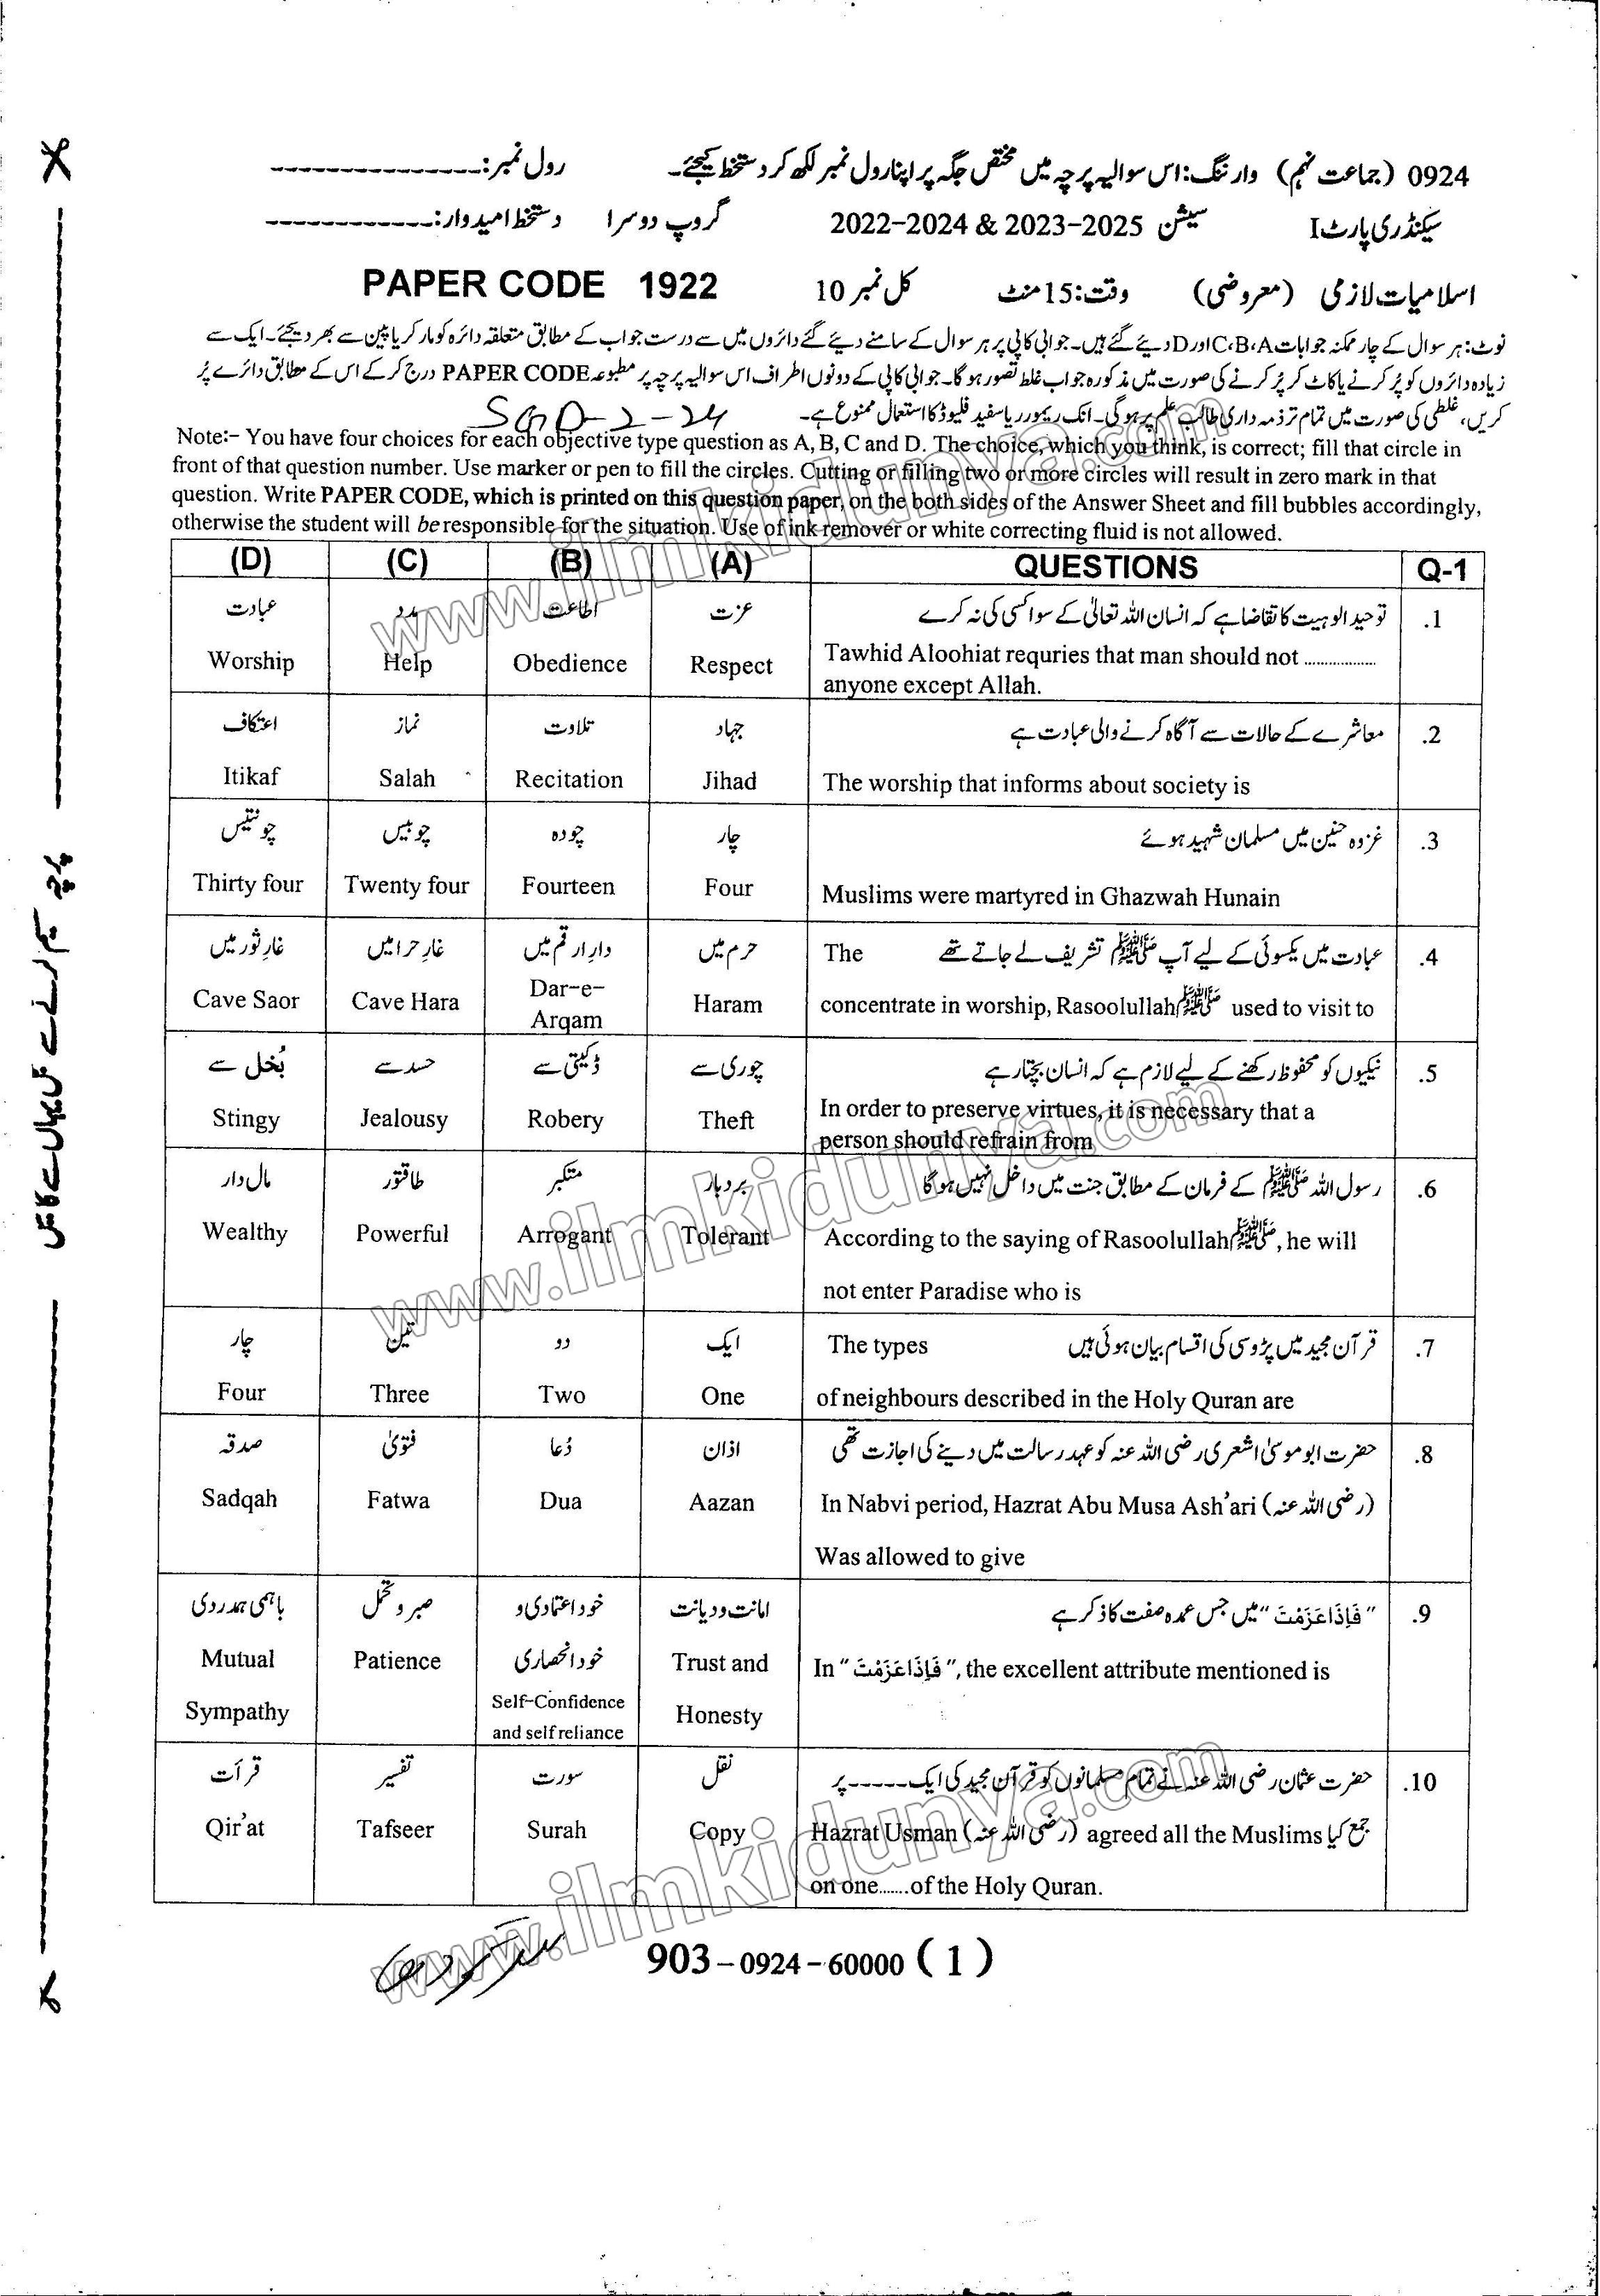 0924 (جماعت نہم) وارننگ: اس سوالیہ پرچہ میں مختص جگہ پر اپنا رول نمبر لکھ کر دستخط کیجئے۔ رول نمبر: ---------------
سیکنڈری پارٹ I سیشن 2022-2024 & 2023-2025 گروپ دوسرا دستخط امیدوار: ------------
اسلامیات لازمی (معروضی) وقت: 15 منٹ کل نمبر 10 PAPER CODE 1922
نوٹ: ہر سوال کے چار ممکنہ جوابات C، B، A اور D دیئے گئے ہیں۔ جوابی کاپی پر ہر سوال کے سامنے دیئے گئے دائروں میں سے درست جواب کے مطابق متعلقہ دائرہ کو مارکر یا پین سے بھر دیجئے۔ ایک سے
زیادہ دائروں کو پُر کرنے یا کاٹ کر پُر کرنے کی صورت میں مذکورہ جواب غلط تصور ہو گا۔ جوابی کاپی کے دونوں اطراف اس سوالیہ پرچہ پر مطبوعہ PAPER CODE درج کر کے اس کے مطابق دائرے پُر
کریں، غلطی کی صورت میں تمام تر ذمہ داری طالب علم پر ہو گی۔ انک ریموور یا سفید فلیوڈ کا استعمال ممنوع ہے۔ SGD-2-24
Note:- You have four choices for each objective type question as A, B, C and D. The choice, which you think, is correct; fill that circle in
front of that question number. Use marker or pen to fill the circles. Cutting or filling two or more circles will result in zero mark in that
question. Write PAPER CODE, which is printed on this question paper, on the both sides of the Answer Sheet and fill bubbles accordingly,
otherwise the student will be responsible for the situation. Use of ink remover or white correcting fluid is not allowed.
(D) (C) (B) (A) QUESTIONS Q-1
عبادت مدد اطاعت عزت توحید الوہیت کا تقاضا ہے کہ انسان اللہ تعالیٰ کے سوا کسی کی نہ کرے .1
Worship Help Obedience Respect Tawhid Aloohiat requries that man should not ..................
anyone except Allah.
اعتکاف نماز تلاوت جہاد معاشرے کے حالات سے آگاہ کرنے والی عبادت ہے .2
Itikaf Salah Recitation Jihad The worship that informs about society is
چونتیس چوبیس چودہ چار غزوہ حنین میں مسلمان شہید ہوئے .3
Thirty four Twenty four Fourteen Four Muslims were martyred in Ghazwah Hunain
غارِ ثور میں غارِ حرا میں دارِ ارقم میں حرم میں عبادت میں یکسوئی کے لیے آپ ﷺ تشریف لے جاتے تھے The .4
Cave Saor Cave Hara Dar-e-Arqam Haram concentrate in worship, Rasoolullah ﷺ used to visit to
بُخل سے حسد سے ڈکیتی سے چوری سے نیکیوں کو محفوظ رکھنے کے لیے لازم ہے کہ انسان بچتا رہے .5
Stingy Jealousy Robery Theft In order to preserve virtues, it is necessary that a
person should refrain from
مال دار طاقتور متکبر بردبار رسول اللہ ﷺ کے فرمان کے مطابق جنت میں داخل نہیں ہو گا .6
Wealthy Powerful Arrogant Tolerant According to the saying of Rasoolullah ﷺ, he will
not enter Paradise who is
چار تین دو ایک قرآن مجید میں پڑوسی کی اقسام بیان ہوئی ہیں The types .7
Four Three Two One of neighbours described in the Holy Quran are
صدقہ فتویٰ دُعا اذان حضرت ابو موسیٰ اشعری رضی اللہ عنہ کو عہد رسالت میں دینے کی اجازت تھی .8
Sadqah Fatwa Dua Aazan In Nabvi period, Hazrat Abu Musa Ash'ari (رضی اللہ عنہ)
Was allowed to give
باہمی ہمدردی صبر و تحمل خود اعتمادی و خود انحصاری امانت و دیانت ”فَاِذَا عَزَمْتَ“ میں جس عمدہ صفت کا ذکر ہے .9
Mutual Sympathy Patience Self-Confidence and self reliance Trust and Honesty In “ فَاِذَا عَزَمْتَ ”, the excellent attribute mentioned is
قرأت تفسیر سورت نقل حضرت عثمان رضی اللہ عنہ نے تمام مسلمانوں کو قرآن مجید کی ایک ----- پر .10
Qir'at Tafseer Surah Copy Hazrat Usman (رضی اللہ عنہ) agreed all the Muslims جمع کیا
on one.......of the Holy Quran.
903-0924-60000 (1)
www.ilmkidunya.com
www.ilmkidunya.com
www.ilmkidunya.com